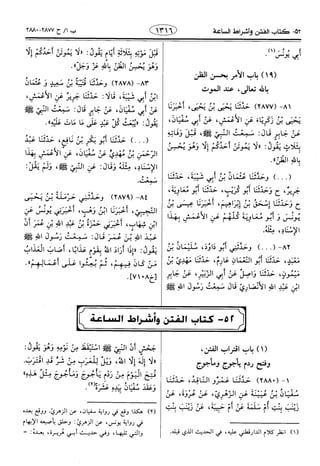 ٥٢- كتاب الفتن وأشراط الساعة
١٣١٦
ب ١/ ح ٢٨٧٧-٢٨٨٠
أبي يُونُسَ(١).
(١٩) باب الأمر بحسن الظن
بالله تعالى، عند الموت
٨١- (٢٨٧٧) حَدَّثَنَا يَحْيَى بْنُ يَحْيَى، أَخْبَرَنَا
يَحْيَى بْنُ زَكَرِيَّاءَ، عَنِ الأَعْمَشِ، عَنْ أَبِي سُفْيَانَ،
عَنْ جَابِرٍ قَالَ: سَمِعْتُ النَّبِيَّ ﷺ، قَبْلَ وَفَاتِهِ
بِثَلَاثٍ، يَقُولُ: «لَا يَمُوتَنَّ أَحَدُكُمْ إِلَّا وَهُوَ يُحْسِنُ
بِاللهِ الظَّنَّ».
(...) وحَدَّثَنَا عُثْمَانُ بْنُ أَبِي شَيْبَةَ، حَدَّثَنَا
جَرِيرٌ، ح وَحَدَّثَنَا أَبُو كُرَيْبٍ، حَدَّثَنَا أَبُو مُعَاوِيَةَ،
ح وَحَدَّثَنَا إِسْحَاقُ بْنُ إِبْرَاهِيمَ، أَخْبَرَنَا عِيسَى بْنُ
يُونُسَ وَ أَبُو مُعَاوِيَةَ كُلُّهُمْ عَنِ الأَعْمَشِ، بِهَذَا
الإِسْنَادِ، مِثْلَهُ.
٨٢- (...) وحَدَّثَنِي أَبُو دَاوُدَ، سُلَيْمَانُ بْنُ
مَعْبَدٍ، حَدَّثَنَا أَبُو النُّعْمَانِ عَارِمٌ، حَدَّثَنَا مَهْدِيُّ بْنُ
مَيْمُونٍ، حَدَّثَنَا وَاصِلٌ عَنْ أَبِي الزُّبَيْرِ، عَنْ جَابِرِ
ابْنِ عَبْدِ اللهِ الأَنْصَارِيِّ قَالَ سَمِعْتُ رَسُولَ اللهِ ﷺ
قَبْلَ مَوْتِهِ بِثَلَاثَةِ أَيَّامٍ يَقُولُ: «لَا يَمُوتَنَّ أَحَدُكُمْ إِلَّا
وَهُوَ يُحْسِنُ الظَّنَّ بِاللهِ عَزَّ وَجَلَّ».
٨٣- (٢٨٧٨) وحَدَّثَنَا قُتَيْبَةُ بْنُ سَعِيدٍ وَ عُثْمَانُ
ابْنُ أَبِي شَيْبَةَ، قَالَا: حَدَّثَنَا جَرِيرٌ عَنِ الأَعْمَشِ،
عَنْ أَبِي سُفْيَانَ، عَنْ جَابِرٍ قَالَ: سَمِعْتُ النَّبِيَّ ﷺ
يَقُولُ: «يُبْعَثُ كُلُّ عَبْدٍ عَلَى مَا مَاتَ عَلَيْهِ».
(...) حَدَّثَنَا أَبُو بَكْرِ بْنُ نَافِعٍ، حَدَّثَنَا عَبْدُ
الرَّحْمَنِ بْنُ مَهْدِيٍّ عَنْ سُفْيَانَ، عَنِ الأَعْمَشِ بِهَذَا
الإِسْنَادِ، مِثْلَهُ وَقَالَ: عَنِ النَّبِيِّ ﷺ، وَلَمْ يَقُلْ:
سَمِعْتُ.
٨٤- (٢٨٧٩) وحَدَّثَنِي حَرْمَلَةُ بْنُ يَحْيَى
التُّجِيبِيُّ، أَخْبَرَنَا ابْنُ وَهْبٍ، أَخْبَرَنِي يُونُسُ عَنِ
ابْنِ شِهَابٍ، أَخْبَرَنِي حَمْزَةُ بْنُ عَبْدِ اللهِ بْنِ عُمَرَ أَنَّ
عَبْدَ اللهِ بْنَ عُمَرَ قَالَ: سَمِعْتُ رَسُولَ اللهِ ﷺ
يَقُولُ: «إِذَا أَرَادَ اللهُ بِقَوْمٍ عَذَابًا، أَصَابَ الْعَذَابُ
مَنْ كَانَ فِيهِمْ، ثُمَّ بُعِثُوا عَلَى أَعْمَالِهِمْ».
[خ٧١٠٨]
٥٢- كتاب الفتن وأشراط الساعة
(١) باب اقتراب الفتن،
وفتح ردم يأجوج ومأجوج
١- (٢٨٨٠) حَدَّثَنَا عَمْرٌو النَّاقِدُ، حَدَّثَنَا
سُفْيَانُ بْنُ عُيَيْنَةَ عَنِ الزُّهْرِيِّ، عَنْ عُرْوَةَ، عَنْ
زَيْنَبَ بِنْتِ أُمِّ سَلَمَةَ، عَنْ أُمِّ حَبِيبَةَ، عَنْ زَيْنَبَ بِنْتِ
جَحْشٍ أَنَّ النَّبِيَّ ﷺ اسْتَيْقَظَ مِنْ نَوْمِهِ وَهُوَ يَقُولُ:
«لَا إِلَهَ إِلَّا اللهُ، وَيْلٌ لِلْعَرَبِ مِنْ شَرٍّ قَدِ اقْتَرَبَ.
فُتِحَ الْيَوْمَ مِنْ رَدْمِ يَأْجُوجَ وَمَأْجُوجَ مِثْلُ هَذِهِ»
وَعَقَدَ سُفْيَانُ بِيَدِهِ عَشَرَةً(٢).
(١) انظر كلام الدارقطني عليه، في الحديث الذي قبله.
(٢) هكذا وقع في رواية سفيان، عن الزهري. ووقع بعده
في رواية يونس، عن الزهري: وحلق بأصبعه الإبهام
والتي تليها، وفي حديث أبي هريرة، بعده: -